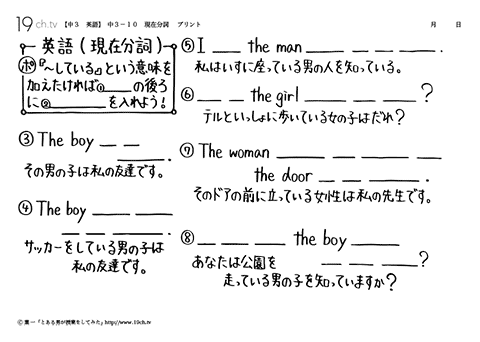 19ch.tv 【中3 英語】 中3-10 現在分詞 プリント 月 日
英語(現在分詞)
ポ 『~している』という意味を
加えたければ①____の後ろ
に②________を入れよう!
③ The boy __ __
______.
その男の子は私の友達です。
④ The boy ____ ____
__ __ ____.
サッカーをしている男の子は
私の友達です。
⑤ I ____ the man ____ __ __ ____.
私はいすに座っている男の人を知っている。
⑥ ____ __ the girl ____ ____ ____?
テルといっしょに歩いている女の子はだれ?
⑦ The woman ____ __ ____ __
the door __ __ ____.
そのドアの前に立っている女性は私の先生です。
⑧ __ ____ ____ the boy ____
__ __ ____?
あなたは公園を
走っている男の子を知っていますか?
Ⓒ 葉一「とある男が授業をしてみた」http://www.19ch.tv